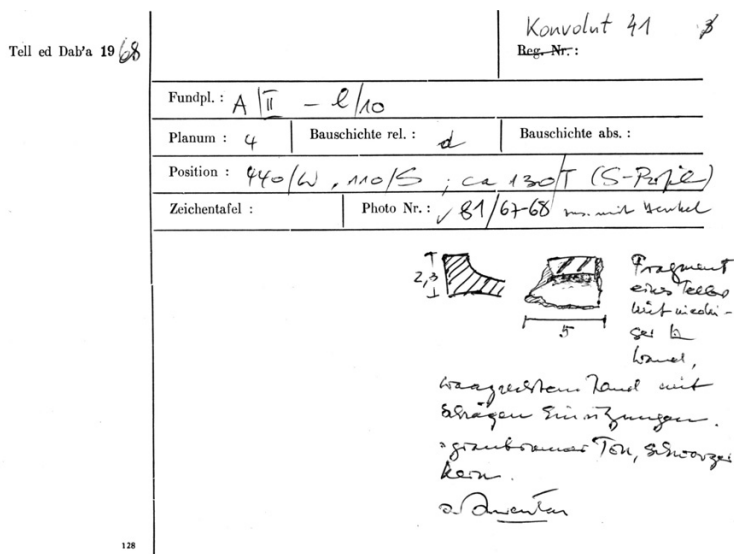 Konvolut 41
Tell ed Dab'a 1968
Reg. Nr. :
Fundpl. : A/II – l/10
Planum : 4
Bauschichte rel. : d
Bauschichte abs. :
Position : 440/W, 110/S ; ca 130/T (S-Profil)
Zeichentafel :
Photo Nr. : 81/67-68 mit Henkel
2,3
5
Fragment
eines Tellers
mit niedri-
ger
Wand,
waagrechtem Rand mit
schrägen Einritzungen.
graubrauner Ton, schwarzer
Kern.
Inventar
128